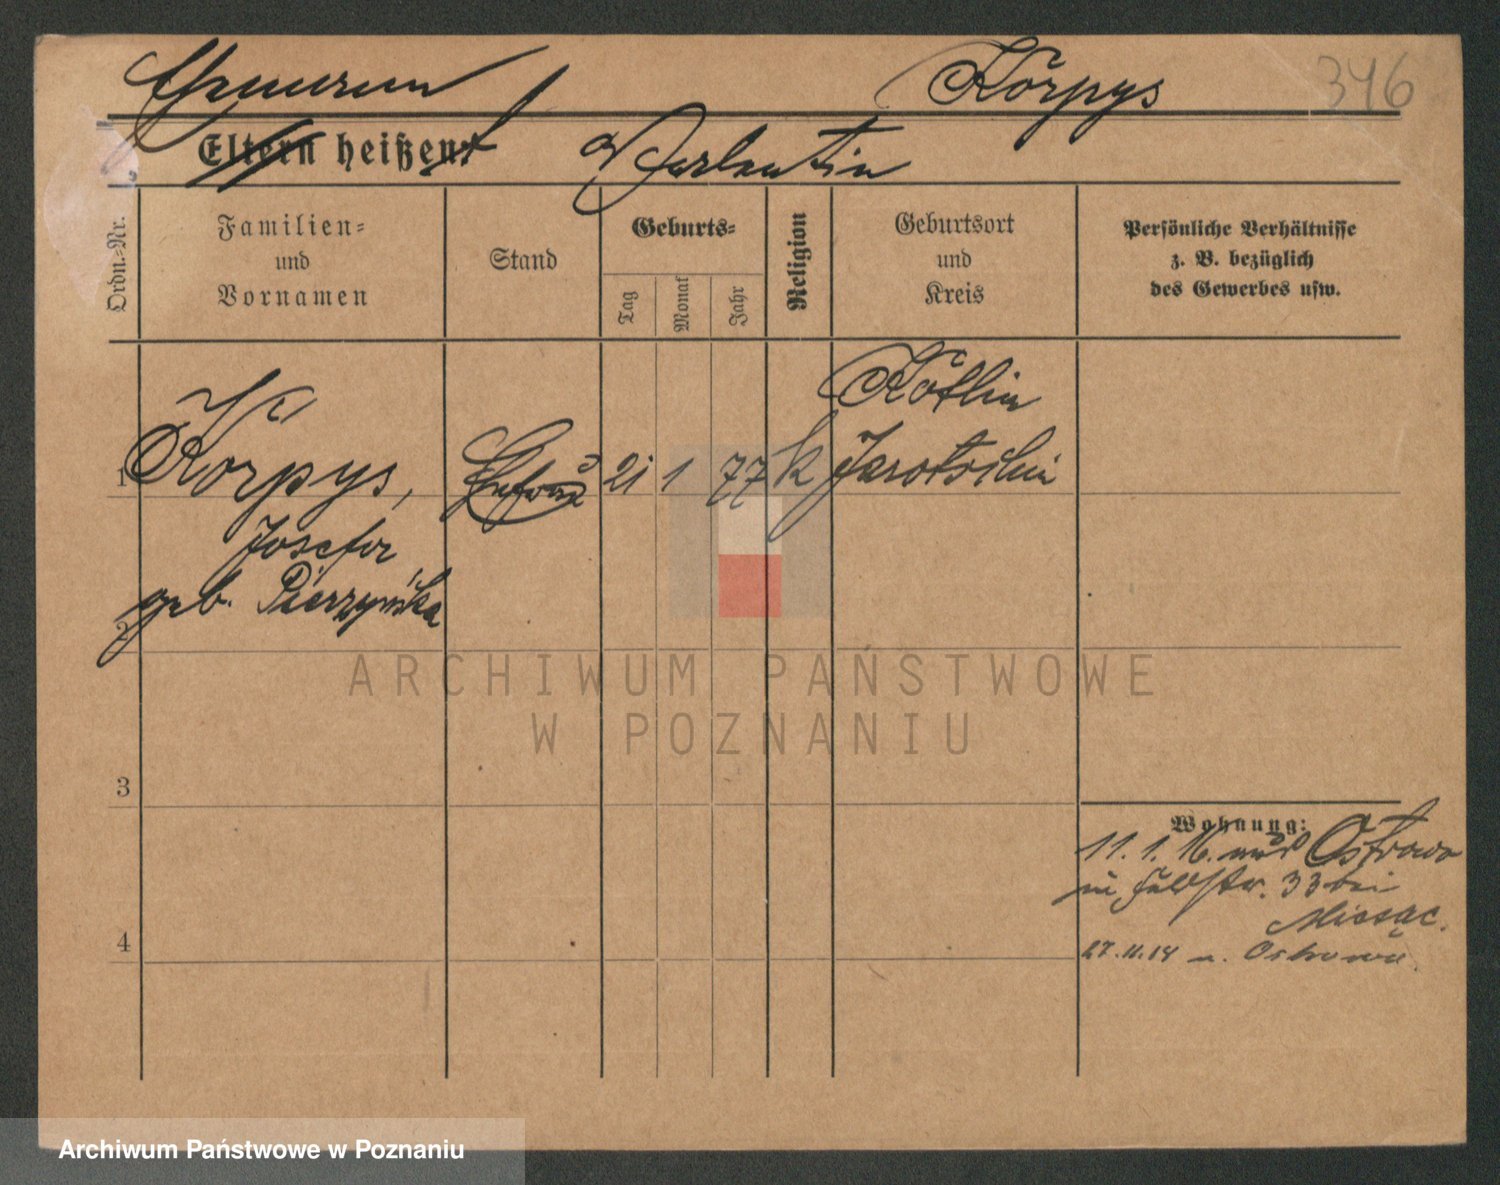 Ehemann Körpys 346
Eltern heißen: Valentin
Ordn.=Nr.
Familien=
und
Vornamen
Stand
Geburts=
Tag
Monat
Jahr
Religion
Geburtsort
und
Kreis
Persönliche Verhältnisse
z. B. bezüglich
des Gewerbes usw.
1
Körpys,
Josefa
geb. Pierzyńska
Ehefrau
21 1 77 k
Kotlin
Jarotschin
2
ARCHIWUM PAŃSTWOWE
W POZNANIU
3
4
Wohnung:
11. 1. 16. Ostrowo
Feldstr. 33 bei
27.11.14 n. Ostrowo
Archiwum Państwowe w Poznaniu